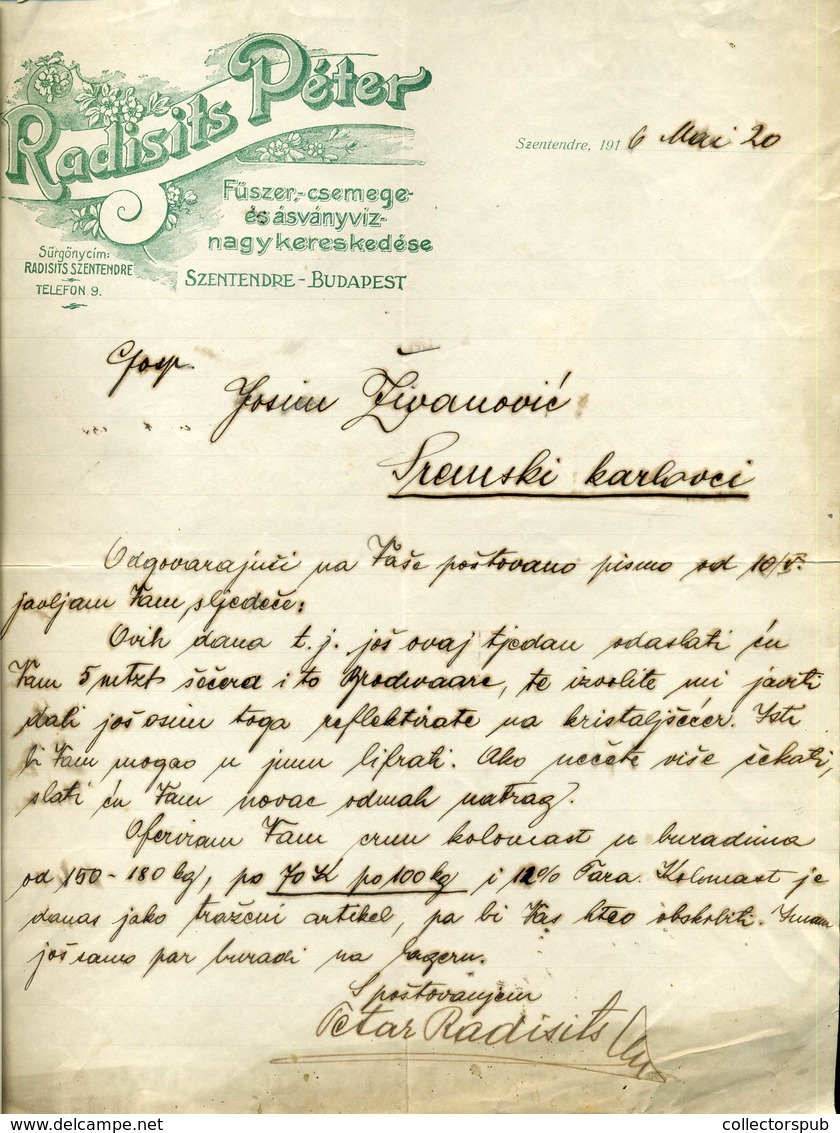 Radisits Péter
Fűszer,-csemege-
és ásványvíz-
nagykereskedése
Sürgönycím:
RADISITS SZENTENDRE
TELEFON 9.
SZENTENDRE-BUDAPEST
Szentendre, 1916 Mai 20
Gosp.
Josim Živanović
Sremski karlovci
Odgovarajući na Vaše poštovano pismo od 10/V.
javljam Vam sljedeće:
Ovih dana t. j. još ovaj tjedan odaslati ću
Vam 5 mtzt šećera i to Brodwaare, te izvolite mi javiti
dali još osim toga reflektirate na kristaljšećer. Isti
bi Vam mogao u junu lifrati. Ako nećete više čekati,
slati ću Vam novac odmah natrag.
Oferiram Vam crnu kolomast u buradima
od 150-180 kg, po 70 K po 100 kg i 12% Tara. Kolomast je
danas jako traženi artikel, pa bi Vas hteo obskrbiti. Imam
još samo par buradi na lageru.
S poštovanjem
Petar Radisits
collectorspub